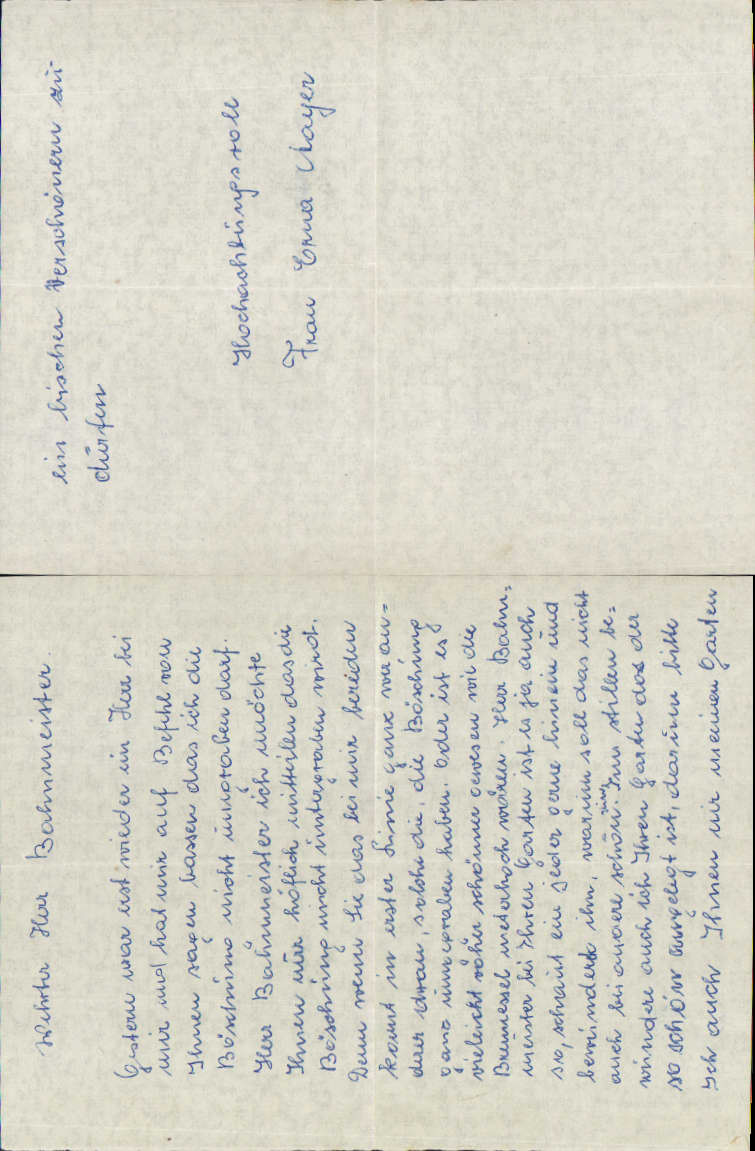 Werter Herr Bahnmeister.
Gestern war erst wieder ein Herr bei
mir und hat mir auf Befehl von
Ihnen sagen lassen das ich die
Böschung nicht umgraben darf.
Herr Bahnmeister ich möchte
Ihnen nur höflich mitteilen das die
Böschung nicht umgegraben wird.
Denn wenn Sie das bei mir bereden
kommt in erster Linie ganz wer an-
der dran, solche die, die Böschung
ganz umgraben haben. Oder ist es
vieleicht vöher schönner gewesen wie die
Brennessel meterhoch wären. Herr Bahn-
meister bei Ihren Garten ist es ja auch
so, schaut ein jeder gerne hinein und
bewundert ihn, warum soll das nicht
auch bei andere schön sein. Im stillen be-
wundere auch ich Ihren Garten das der
so schön angelegt ist, darum bitte
ich auch Ihnen mir meinen Garten
ein bischen Verschönern zu-
dürfen
Hochachtungsvoll
Frau Erna Mayer